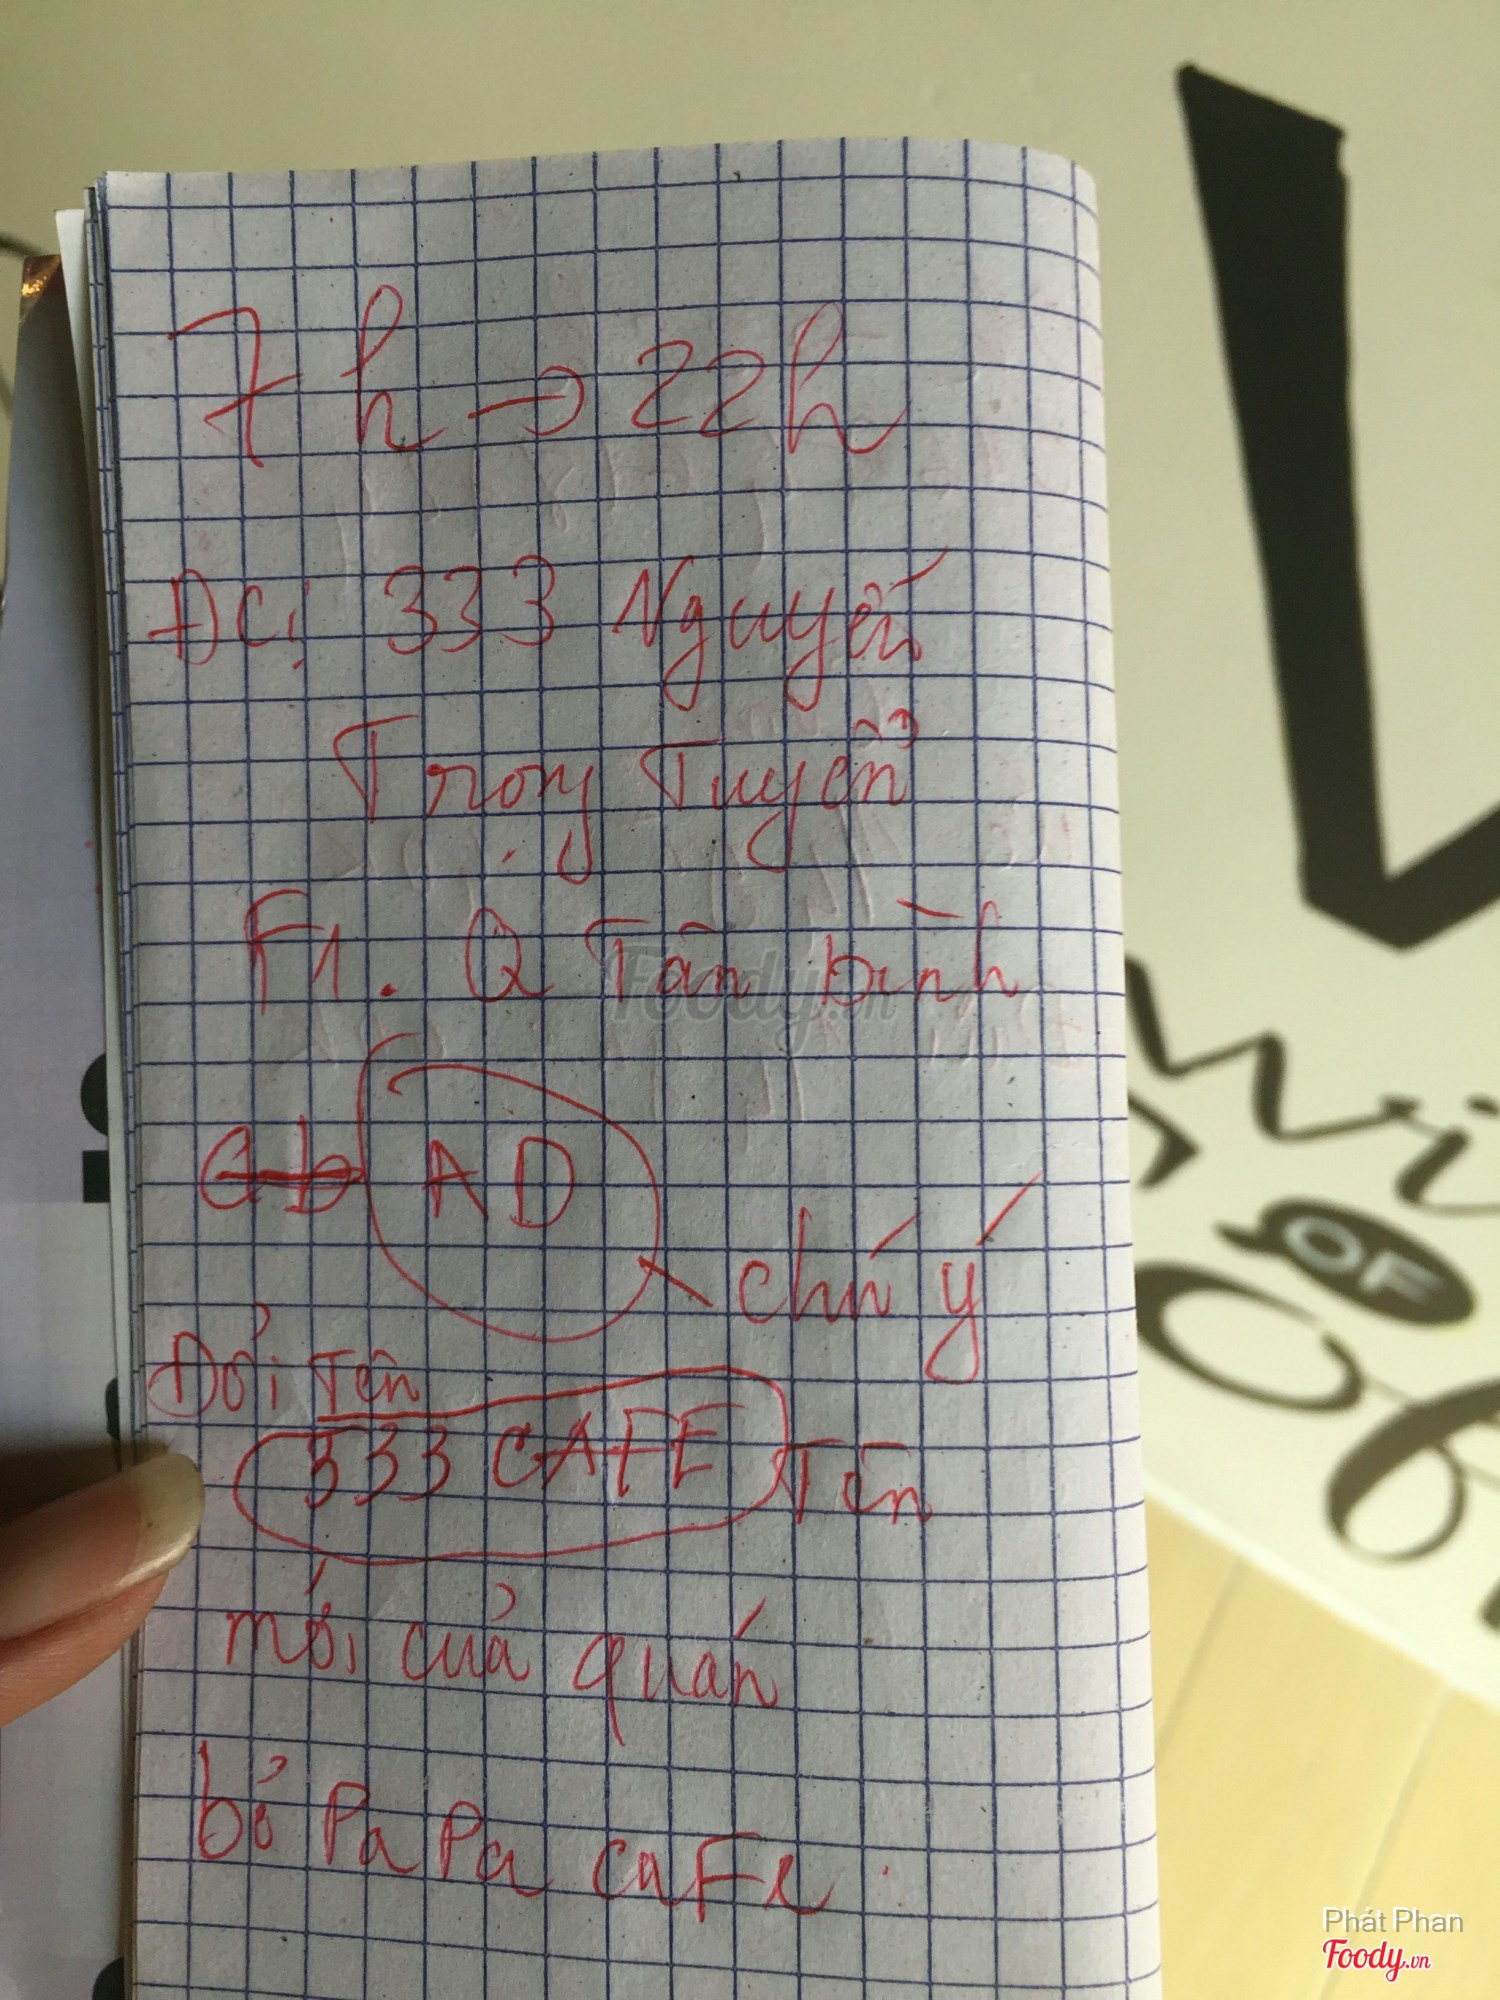 7h → 22h
ĐC: 333 Nguyễn
Trọng Tuyển
F1. Q Tân bình
AD
chú ý
Đổi Tên
333 CAFE Tên
mới của quán
bỏ PaPa caFe.
Foody.vn
OF
Phát Phan
Foody.vn